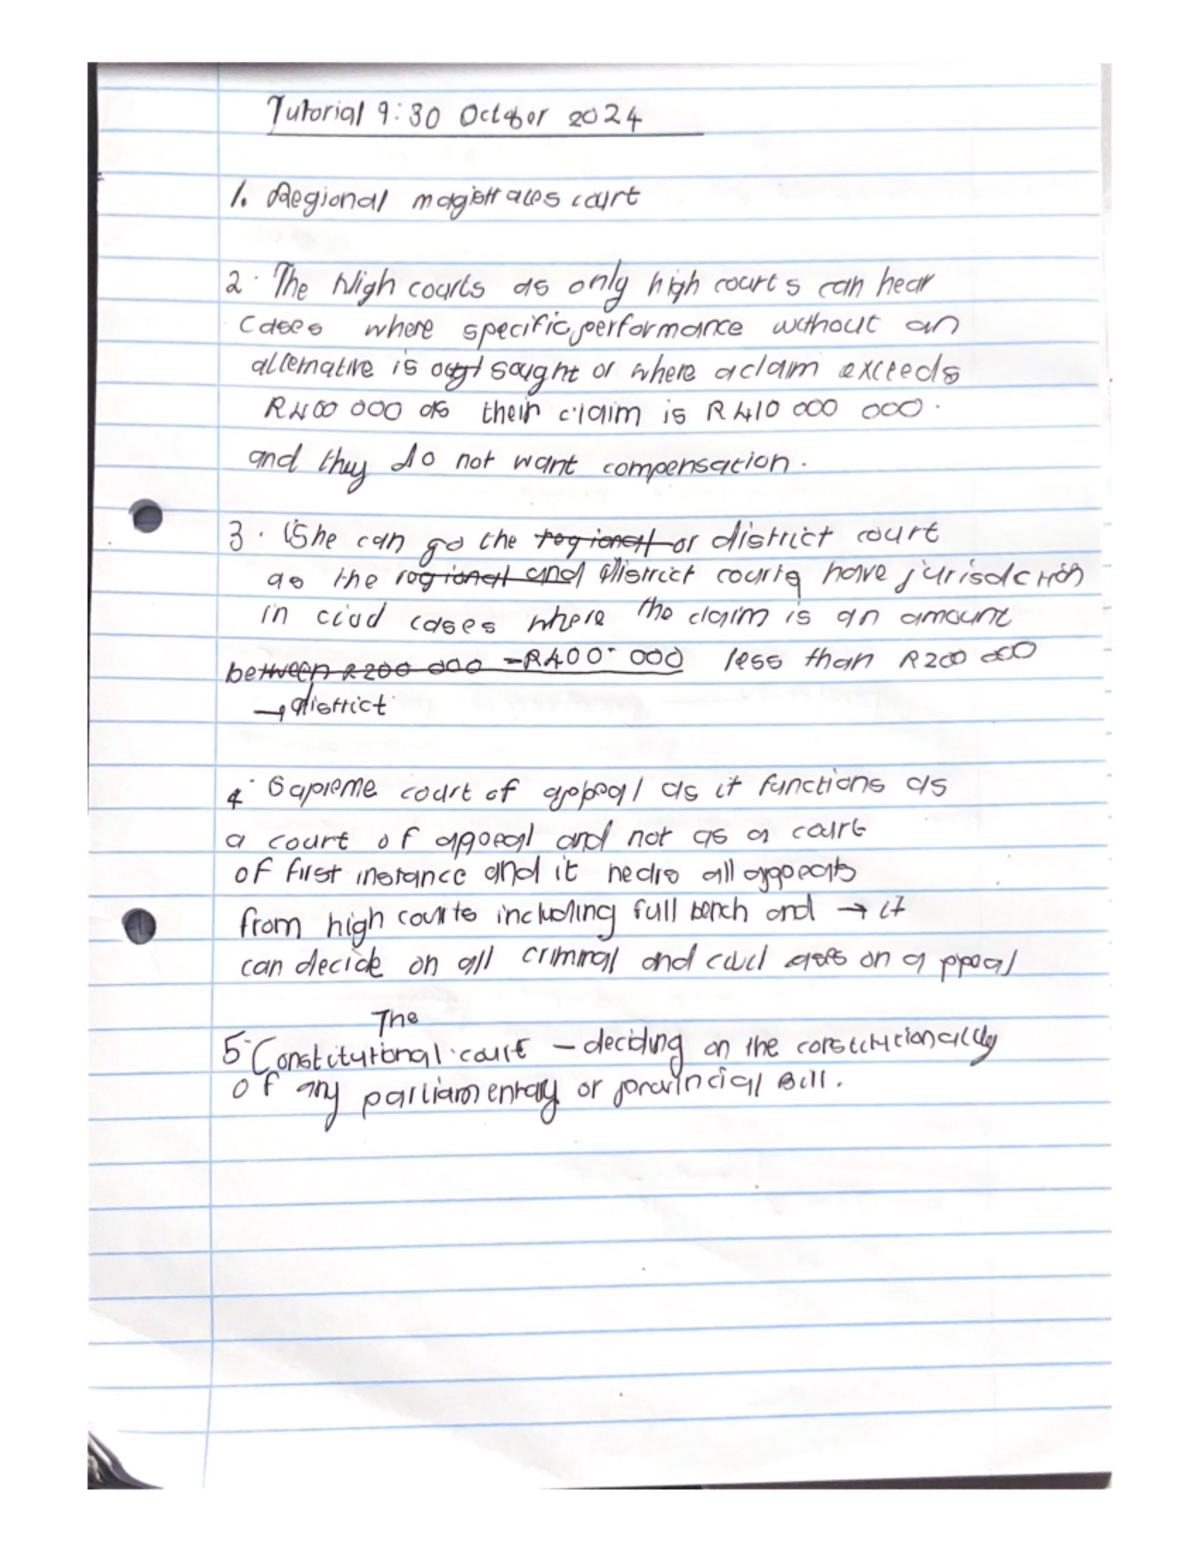 Tutorial 9:30 October 2024
1. Regional magistrates court
2. The High courts as only high courts can hear
cases where specific performance without an
alternative is sought or where a claim exceeds
R400 000 as their claim is R410 000 000.
and they do not want compensation.
3. She can go the regional or district court
as the regional and district courts have jurisdiction
in civil cases where the claim is an amount
between R200 000 - R400 000 less than R200 000
→ district
4. Supreme court of appeal as it functions as
a court of appeal and not as a court
of first instance and it hears all appeals
from high courts including full bench and → it
can decide on all criminal and civil on appeal
The
5. Constitutional court - deciding on the constitutionality
of any parliamentary or provincial Bill.